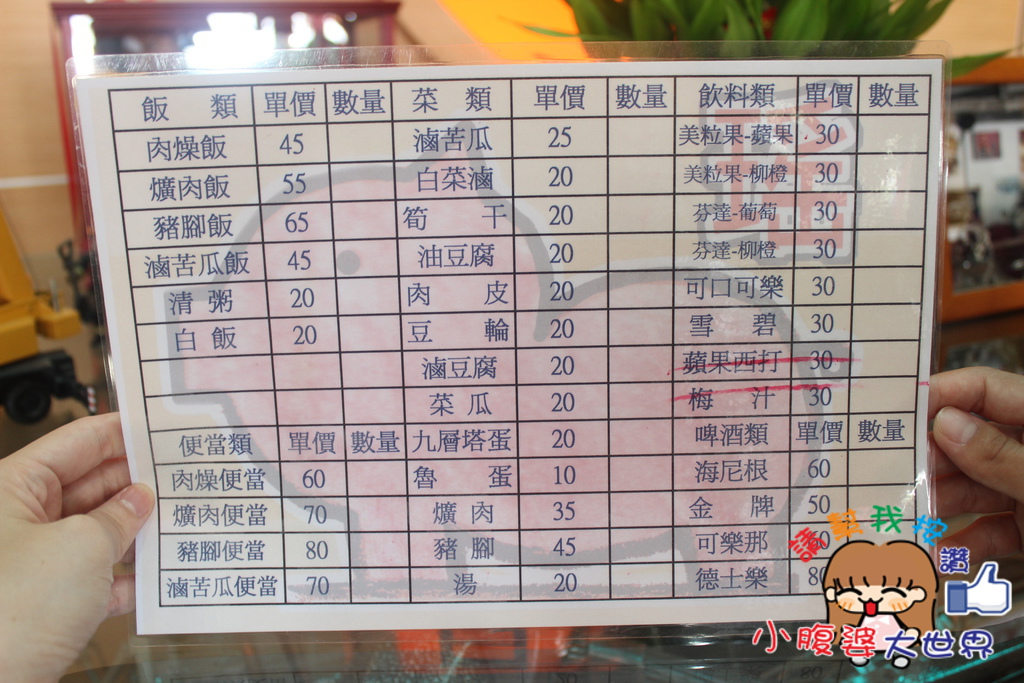 飯 類 單價 數量 菜 類 單價 數量 飲料類 單價 數量
肉燥飯 45 滷苦瓜 25 美粒果-蘋果 30
爌肉飯 55 白菜滷 20 美粒果-柳橙 30
豬腳飯 65 筍 干 20 芬達-葡萄 30
滷苦瓜飯 45 油豆腐 20 芬達-柳橙 30
清 粥 20 肉 皮 20 可口可樂 30
白 飯 20 豆 輪 20 雪 碧 30
滷豆腐 20 蘋果西打 30
菜 瓜 20 梅 汁 30
便當類 單價 數量 九層塔蛋 20 啤酒類 單價 數量
肉燥便當 60 魯 蛋 10 海尼根 60
爌肉便當 70 爌 肉 35 金 牌 50
豬腳便當 80 豬 腳 45 可樂那
滷苦瓜便當 70 湯 20 德士樂 80
請幫我按
讚
小腹婆大世界